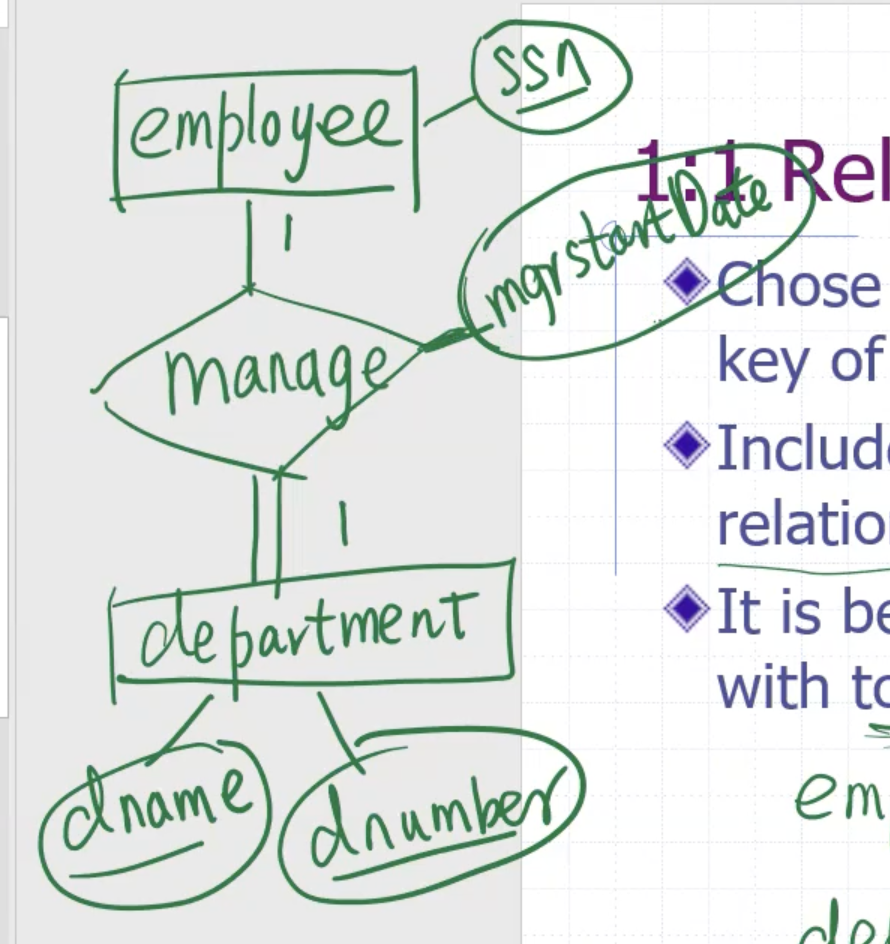 employee
ssn
1
mgrstartDate
manage
1
department
dname
dnumber
1:1 Rel
Chose
key of
Include
relation
It is be
with to
em
de